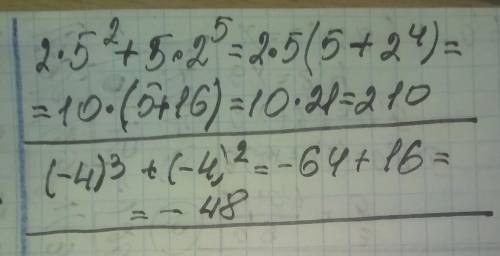 2·5²+5·2⁵=2·5(5+2⁴)=
=10·(5+16)=10·21=210
(-4)³+(-4)²=-64+16=
=-48